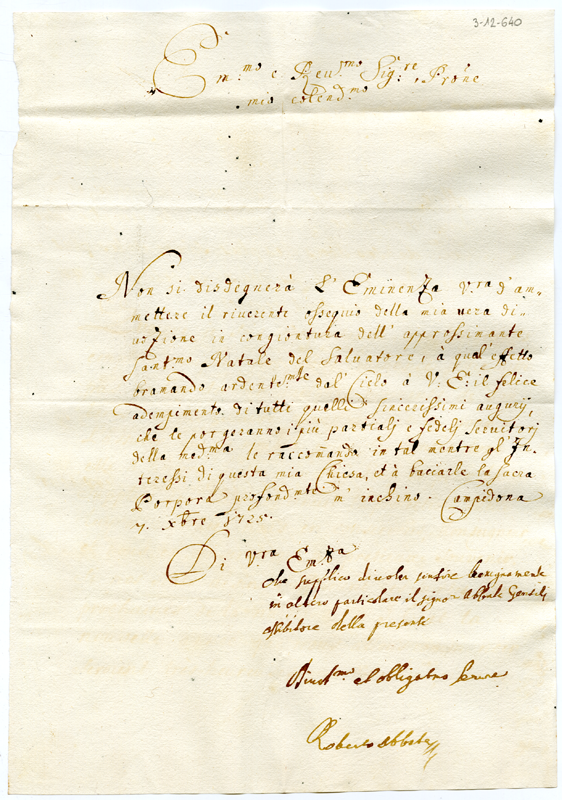 3-12-640
Em.mo e Reu.mo Sig.re, Pro'ne
mio colend.mo
Non si disdegnerà L'Eminenza V.ra d'am-
mettere il riuerente ossequio della mia uera di-
uozione in congiontura dell'approssimante
Sant.mo Natale del Saluatore, a qual'effetto
bramando ardente.mte dal Cielo à V: E: il felice
adempimento di tutti quelli sincerissimi augurij,
che le porgeranno i più partialj e fedelj seruitorj
della med.ma le raccomando in tal mentre gl'In-
teressi di questa mia Chiesa, et à bacciarle la sacra
Porpora profond.mte m'inchino. Campidona
7. Xbre 1725.
Di V.ra Em.za
che supplico di uoler sentire benignamente
in altro particolare il signor Abbate Gentili
essibitore della presente
Diuot.mo et obligat.mo Seru.e
Roberto Abbate